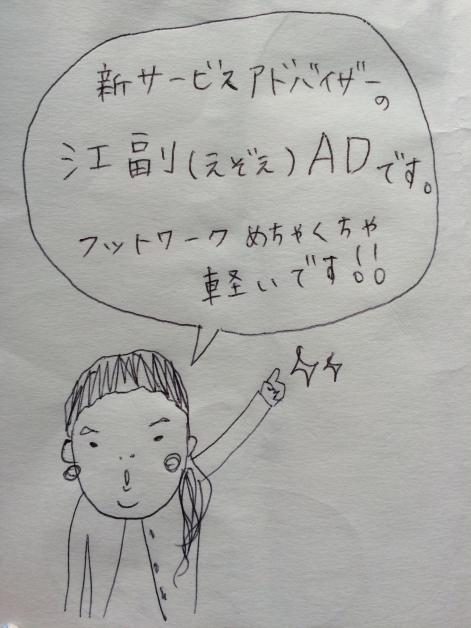 新サービスアドバイザーの
江副(えぞえ)ADです。
フットワークめちゃくちゃ
軽いです!!